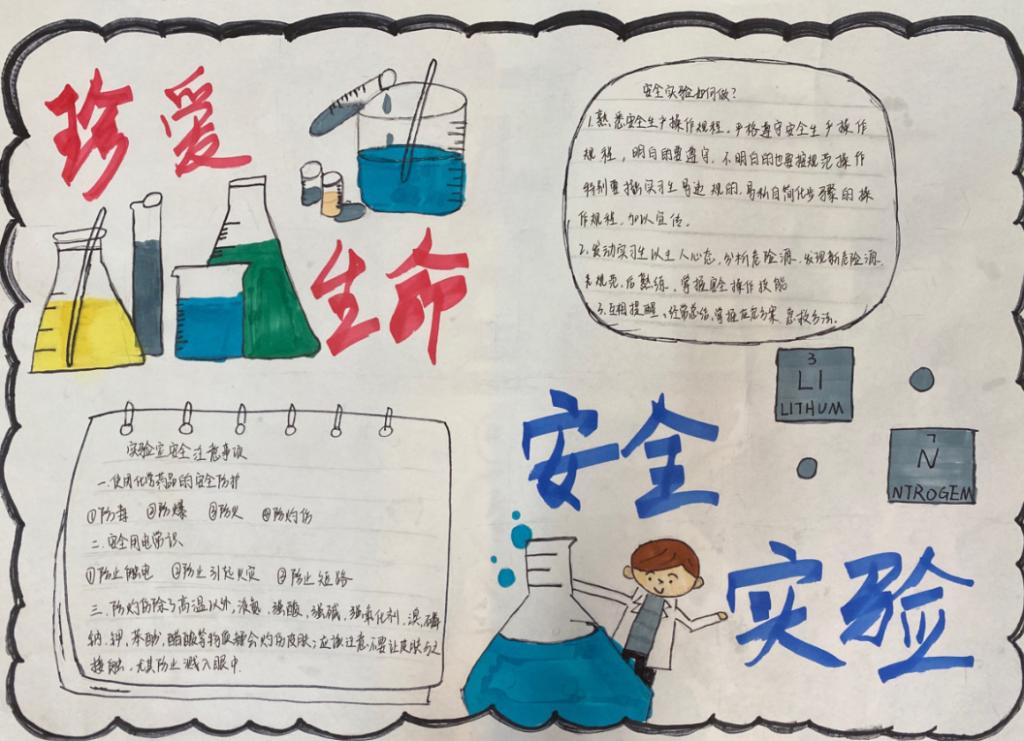 珍爱
生命
安全实验如何做?
1.熟悉安全生产操作规程,严格遵守安全生产操作
规程,明白的要遵守,不明白的也要按规范操作
特别要指出实习生易违规的,易私自简化步骤的操
作规程,加以宣传。
2.发动实习生以主人心态,分析危险源,发现新危险源
先规范,后熟练,掌握安全操作技能
3.互相提醒、经常总结,掌握应急方案,急救方法.
3
LI
LITHUM
7
N
NTROGEM
安全
实验
实验室安全注意事项
一.使用化学药品的安全防护
①防毒 ②防爆 ③防火 ④防灼伤
二.安全用电常识
①防止触电 ②防止引起火灾 ③防止短路
三.防灼伤除了高温以外,液氮,强酸,强碱,强氧化剂,溴,磷
钠,钾,苯酚,醋酸等物质都会灼伤皮肤;应该注意不要让皮肤与之
接触,尤其防止溅入眼中.